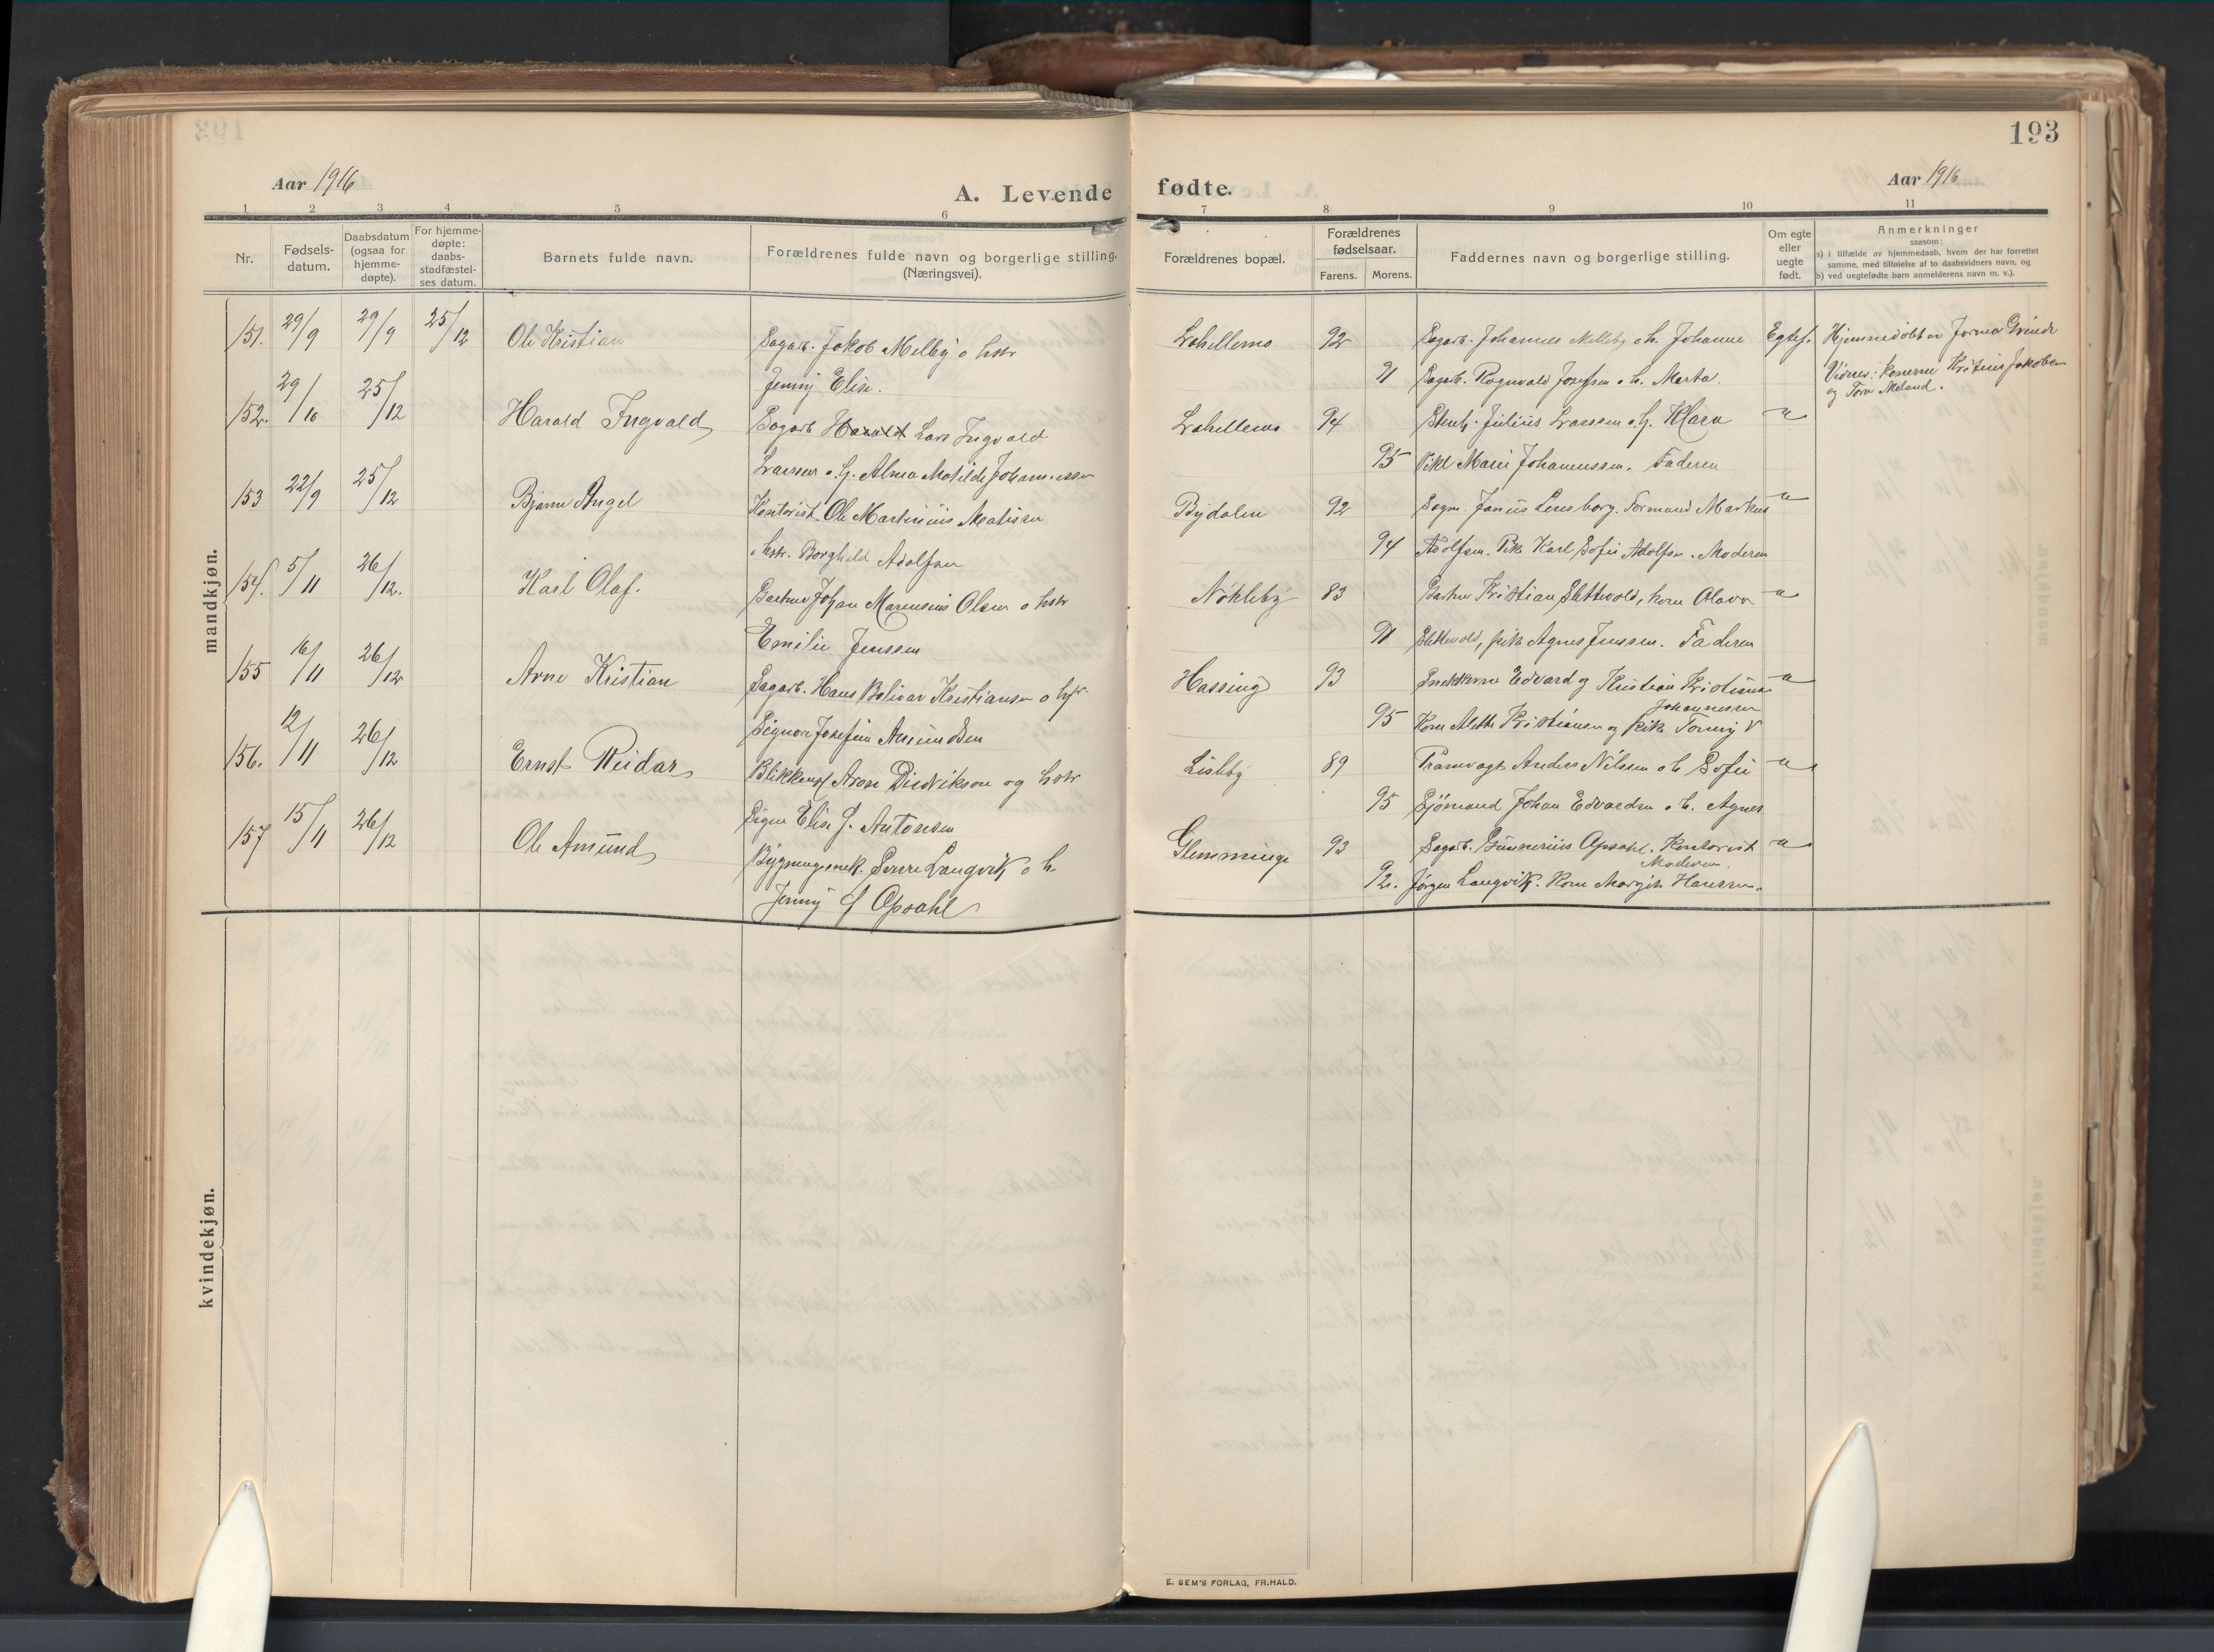 193
Aar 1916
A. Levende
fødte.
Aar 1916
1 2 3 4 5 6
7 8 9 10 11
Nr.
Fødsels-
datum.
Daabsdatum
(ogsaa for
hjemme-
døpte).
For hjemme-
døpte:
daabs-
stadfæstel-
ses datum.
Barnets fulde navn.
Forældrenes fulde navn og borgerlige stilling.
(Næringsvei).
Forældrenes bopæl.
Forældrenes
fødselsaar.
Farens. Morens.
Faddernes navn og borgerlige stilling.
Om egte
eller
uegte
født.
Anmerkninger
saasom:
a) i tilfælde av hjemmedaab, hvem der har forrettet
samme, med tilføielse af to daabsvidners navn, og
b) ved uegtefødte børn anmelderens navn m. v.).
mandkjøn.
151. 29/9 29/9 25/12 Ole Kristian Sagarb. Jakob Melby o hstr
Jenny Elise.
Lahellemo 92 Sagarb. Johannes Melleby o h. Johanne Egtef.
91 Sagarb. Ragnvald Josefsen o h. Marta.
Hjemmedøbt av Jormor
Vidner: Konerne Jakobsen
og Tora Meland.
152. 29/10 25/12 Harald Ingvald Sagarb Harald Lars Ingvald
Larssen o h. Alma Matilde Johannessen
Lahellemo 94 Julius Larssen o h. Klara -"-
95 Marie Johannessen. Faderen
153 22/9 25/12 Bjarne Angel Kontorist Ole Martinius Matisen
o hstr. Borghild Adolfsen
Bydalen 92 Sagm. Janus Lensborg. Formand Markus -"-
94 Adolfsen. Pike Karl Sofie Adolfsen. Moderen
154. 5/11 26/12. Karl Olaf. Johan Marensius Olsen o hstr
Emilie Jenssen
Nøkleby 83 Kristian Slettvold, kone Olava -"-
91 Slettvold, pike Agnes Jenssen. Faderen
155 16/11 26/12 Arne Kristian Sagarb. Hans Bolivar Kristiansen o hstr.
Signora Josefine Amundsen
Hassing 93 Snekkerne Edvard og Kristian Kristiansen -"-
Johannessen
95 Kone Alette Kristiansen og pike Tonny V
156. 12/11 26/12 Ernst Reidar Blikkensl Aron Diedrikson og hstr
Signe Elise J. Antonsen
Lisleby 89 Pramvagt Anders Nilssen o h Sofie -"-
95 Sjømand Johan Edvardsen o h. Agnes
157 15/11 26/12 Ole Amund Bygningssnek. Sverre Langvik o h.
Jenny f Opsahl
Glemminge 93 Sagarb. Gunnerius Opsahl. Kontorist -"-
Moderen.
92. Jørgen Langvik. Kone Margit Hanssen.
kvindekjøn.
E. SEM'S FORLAG, FR.HALD.